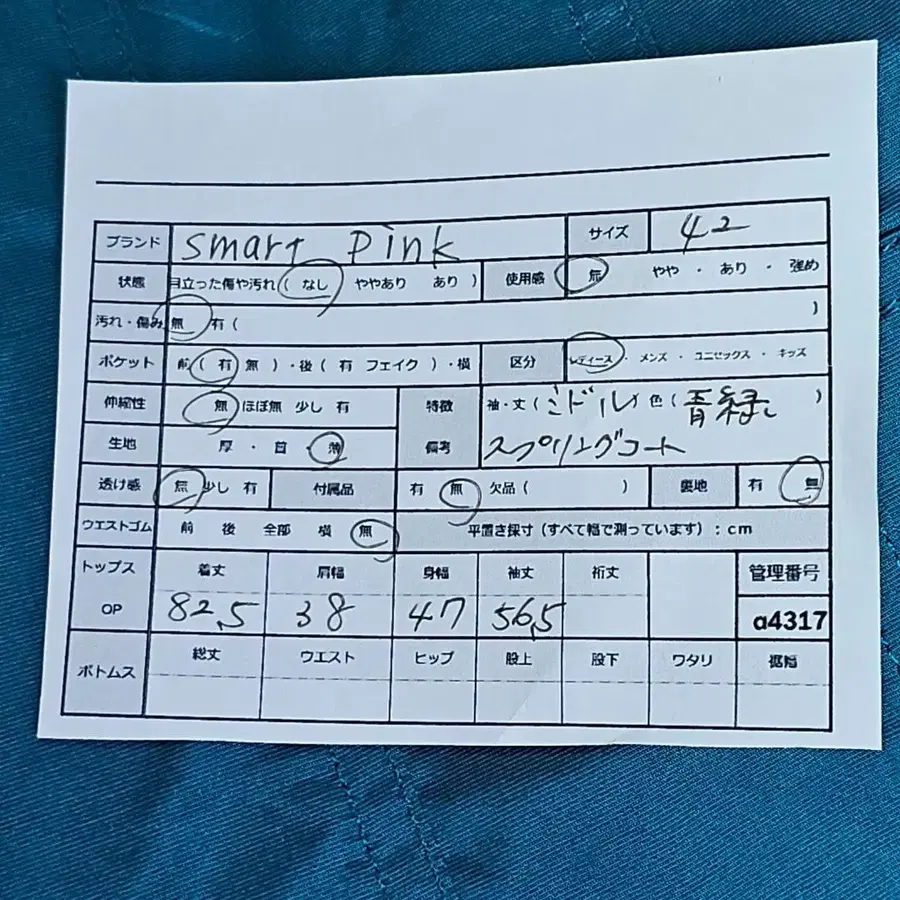 ブランド smart pink サイズ 42
状態 目立った傷や汚れ ( なし ややあり あり ) 使用感 無 やや ・ あり ・ 強め
汚れ・傷み 無 有 ( )
ポケット 前 ( 有 無 ) ・後 ( 有 フェイク ) ・横 区分 レディース ・ メンズ ・ ユニセックス ・ キッズ
伸縮性 無 ほぼ無 少し 有 特徴 袖・丈 ( ミドル ) 色 ( 青緑 )
生地 厚 ・ 普 ・ 薄 備考 スプリングコート
透け感 無 少し 有 付属品 有 無 欠品 ( ) 裏地 有 無
ウエストゴム 前 後 全部 横 無 平置き採寸 (すべて幅で測っています) : cm
トップス 着丈 肩幅 身幅 袖丈 裄丈 管理番号
OP 82.5 38 47 56.5 a4317
ボトムス 総丈 ウエスト ヒップ 股上 股下 ワタリ 裾幅